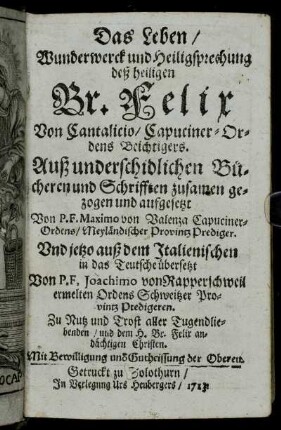 Das Leben /
Wunderwerck und Heiligsprechung
deß heiligen
Br. Felix
Von Cantalicio / Capuciner-Or-
dens Beichtigers.
Auß underschidlichen Bü-
cheren und Schrifften zusamen ge-
zogen und aufgesetzt
Von P.F. Maximo von Valenza Capuciner-
Ordens / Meyländischer Provintz Prediger.
Und jetzo auß dem Italienischen
in das Teutsche übersetzt
Von P.F. Joachimo von Rapperschweil
ermelten Ordens Schweitzer Pro-
vintz Predigeren.
Zu Nutz und Trost aller Tugendlie-
benden / und dem H. Br. Felix an-
dächtigen Christen.
Mit Bewilligung und Gutheissung der Oberen.
Getruckt zu Solothurn /
In Verlegung Urs Heubergers / 1713.
OCAP